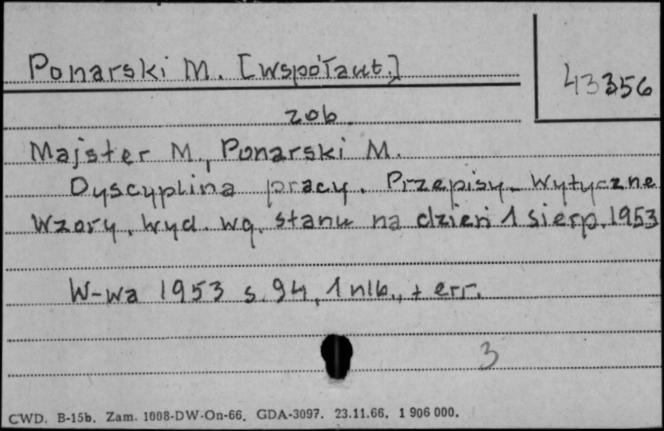 Ponarski M. [współaut.]
43356
zob.
Majster M., Ponarski M.
Dyscyplina pracy. Przepisy - Wytyczne
Wzory. Wyd. wg. stanu na dzień 1 sierp. 1953
W-wa 1953 s. 94, 1 nlb., + err.
3
CWD. B-15b. Zam. 1008-DW-On-66. GDA-3097. 23.11.66. 1 906 000.